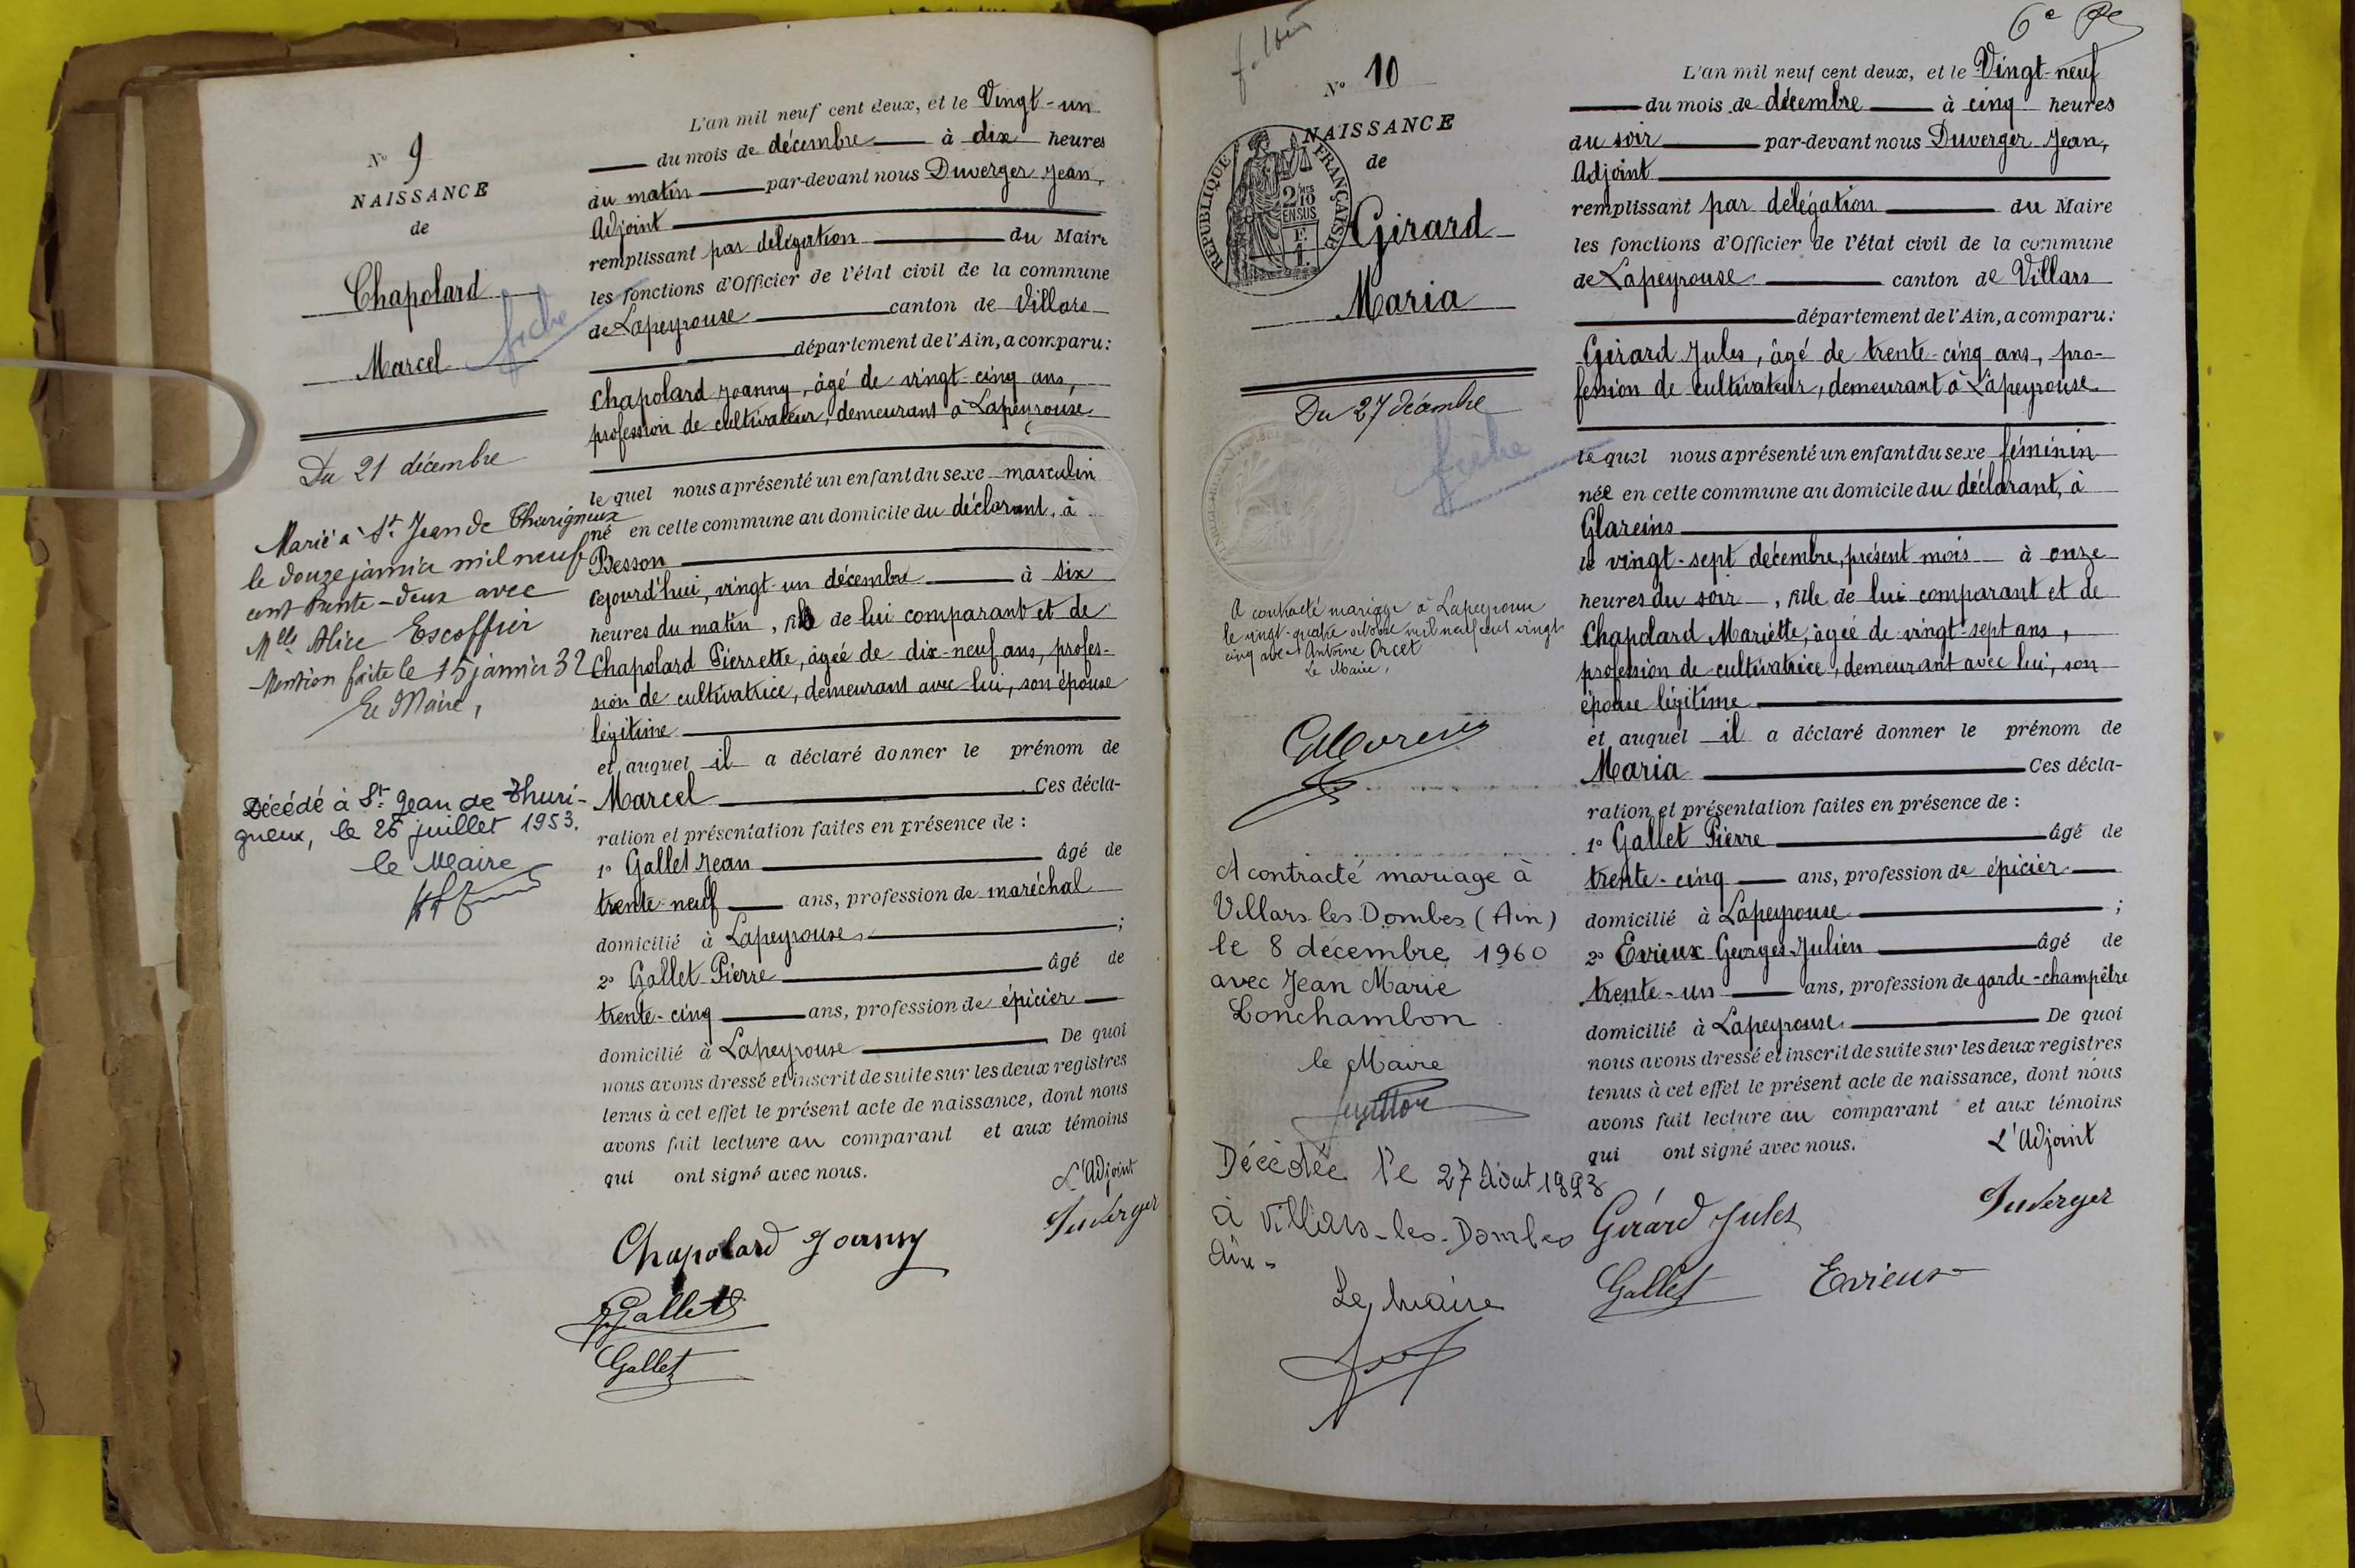 N° 9
NAISSANCE
de
Chapolard
Marcel
fiche
Du 21 décembre
Marié à St Jean de Thurigneux
le douze janvier mil neuf
cent trente-deux avec
Mlle Alice Escoffier
Mention faite le 15 janvier 32
Le Maire,
Décédé à St Jean de Thuri-
gneux, le 26 juillet 1953.
le Maire
L'an mil neuf cent deux, et le Vingt-un
du mois de décembre à dix heures
du matin par-devant nous Duverger Jean,
Adjoint
remplissant par délégation du Maire
les fonctions d'Officier de l'état civil de la commune
de Lapeyrouse canton de Villars
département de l'Ain, a comparu:
Chapolard Joanny, âgé de vingt-cinq ans,
profession de cultivateur, demeurant à Lapeyrouse
le quel nous a présenté un enfant du sexe masculin
né en cette commune au domicile du déclarant, à
Besson
cejourd'hui, vingt-un décembre à six
heures du matin, fils de lui comparant et de
Chapolard Pierrette, âgée de dix-neuf ans, profes-
sion de cultivatrice, demeurant avec lui, son épouse
légitime
et auquel il a déclaré donner le prénom de
Marcel Ces décla-
ration et présentation faites en présence de :
1° Gallet Jean âgé de
trente-neuf ans, profession de maréchal
domicilié à Lapeyrouse ;
2° Gallet Pierre âgé de
trente-cinq ans, profession de épicier
domicilié à Lapeyrouse De quoi
nous avons dressé et inscrit de suite sur les deux registres
tenus à cet effet le présent acte de naissance, dont nous
avons fait lecture au comparant et aux témoins
qui ont signé avec nous.
L'Adjoint
Duverger
Chapolard Joanny
Gallet
Gallet
6e
N° 10
NAISSANCE
de
RÉPUBLIQUE FRANÇAISE
2/10
EN SUS
Girard
Maria
Du 27 décembre
fiche
A contracté mariage à Lapeyrouse
le vingt-quatre octobre mil neuf cent vingt
cinq avec Antoine Orcet
Le Maire,
A contracté mariage à
Villars les Dombes (Ain)
le 8 décembre 1960
avec Jean Marie
Lonchambon
le Maire
Décédée le 27 Août
à Villars-les-Dombes
Ain.
Le Maire
L'an mil neuf cent deux, et le Vingt-neuf
du mois de décembre à cinq heures
du soir par-devant nous Duverger Jean,
Adjoint
remplissant par délégation du Maire
les fonctions d'Officier de l'état civil de la commune
de Lapeyrouse canton de Villars
département de l'Ain, a comparu:
Girard Jules, âgé de trente-cinq ans, pro-
fession de cultivateur, demeurant à Lapeyrouse
le quel nous a présenté un enfant du sexe féminin
née en cette commune au domicile du déclarant, à
Glareins
le vingt-sept décembre, présent mois à onze
heures du soir, fille de lui comparant et de
Chapolard Mariette, âgée de vingt-sept ans,
profession de cultivatrice, demeurant avec lui, son
épouse légitime
et auquel il a déclaré donner le prénom de
Maria Ces décla-
ration et présentation faites en présence de :
1° Gallet Pierre âgé de
trente-cinq ans, profession de épicier
domicilié à Lapeyrouse ;
2° Evrieux Georges-Julien âgé de
trente-un ans, profession de garde-champêtre
domicilié à Lapeyrouse De quoi
nous avons dressé et inscrit de suite sur les deux registres
tenus à cet effet le présent acte de naissance, dont nous
avons fait lecture au comparant et aux témoins
qui ont signé avec nous.
L'Adjoint
Girard Jules Duverger
Gallet Evrieux